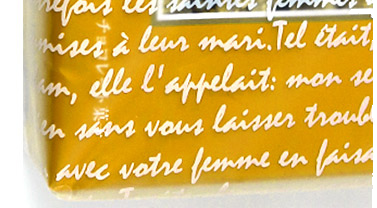 refois les saintes femmes
mises à leur mari. Tel était,
am, elle l'appelait: mon se
en sans vous laisser troubl
avec votre femme en faisa